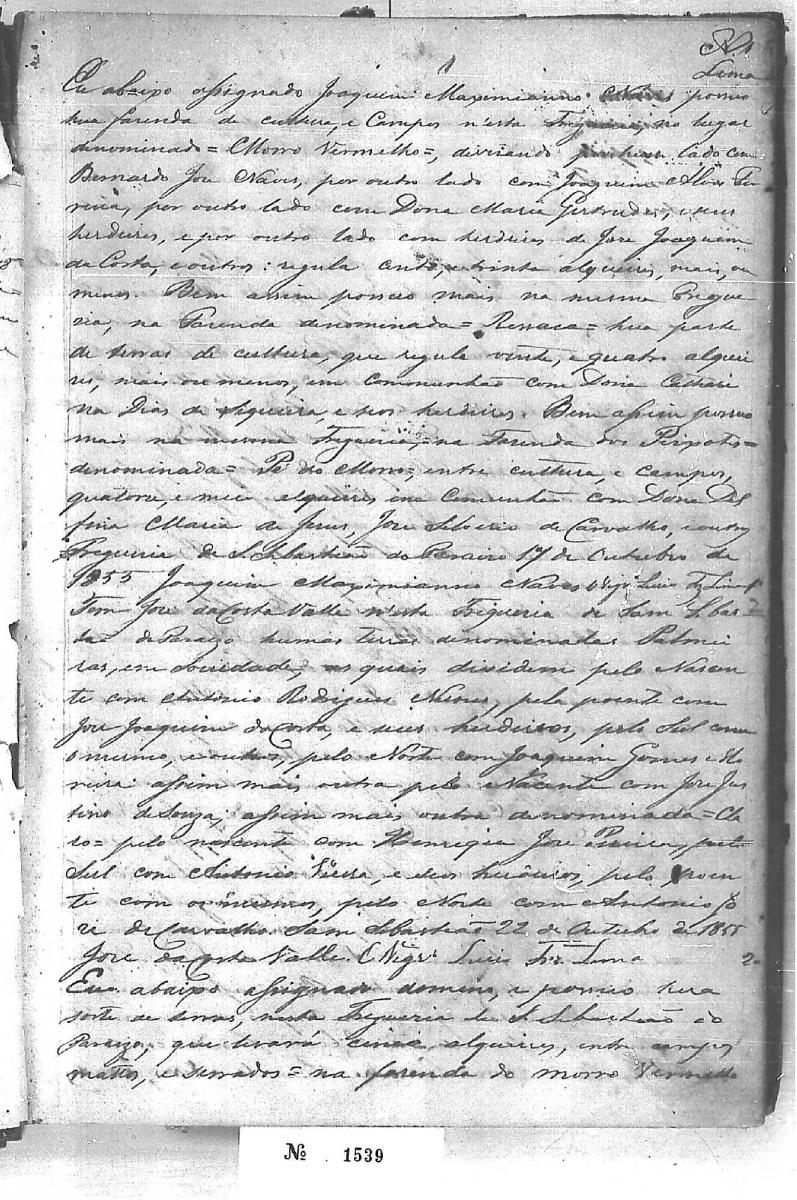 1
Lima
Eu abaixo assignado Joaquim Maximianno Naves possuo
hua fazenda de cultura, e Campos n'esta Freguezia, no lugar
denominado = Morro Vermelho =, divizando por hum lado com
Bernardo Jose Naves, por outro lado com Joaquim Alves Fer
reira, por outro lado com Dona Maria Gertrudes, e seus
herdeiros, e por outro lado com herdeiros de Jose Joaquim
da Costa, e outros: regula cento, e trinta alqueires, mais, ou
menos. Bem assim possuo mais na mesma Fregue
zia, na Fazenda denominada = Ressaca = hua parte
de terras de cultura, que regula vinte, e quatro alquei
res, mais ou menos, em Communhão com Dona Cathari
na Dias de Siqueira, e seos herdeiros. Bem assim possuo
mais na mesma Freguezia, = na Fazenda dos
denominada = Pé do Morro =, entre cultura, e campos,
quatorze, e meio alqueires em Comunhão com Dona Del
fina Maria de Jesus, Jose Silverio de Carvalho, e outros
Freguezia de S. Sebastião do Paraizo 17 de Outubro de
1855 Joaquim Maximianno Naves O Vigr.º Luis Lima
Tem Jose da Costa Valle n'esta Freguezia de Sam Sebas
tião do Paraizo humas terras denominadas Palmei
ras, em sociedade, as quais dividem pelo Nascen
te com Antonio Rodrigues Neves, pela poente com
Jose Joaquim da Costa, e seus herdeiros, pelo Sul com
o mesmo, e outros, pelo Norte com Joaquim Gomes Mo
reira assim mais outra pelo Nacente com Jose Jus
tino de Souza; assim mais outra denominada = Cla
ro = pelo nascente com Henrique Jose Pereira, pelo
Sul com Antonio Vieira, e seos herdeiros, pelo poen
te com os mesmos, pelo Norte com Antonio Jo
ze de Carvalho. Sam Sebastião 22 de Outubro de 1855
Jose da Costa Valle. O Vigr.º Luis Frz. Lima 2
Eu abaixo assignado domino, e possuo hua
sorte de terras, nesta Freguezia de S. Sebastião do
Paraizo, que levará cinco alqueires, entre campos
mattos, e serrados = na fazenda do morro Vermelho
Nº 1539